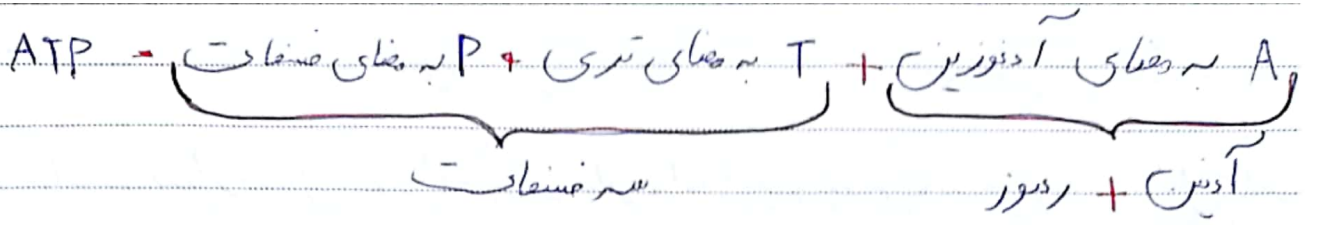 A به معنای آدنوزین + T به معنای تری + P به معنای فسفات = ATP
آدنین + ریبوز
سه فسفات